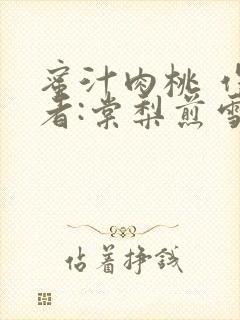 蜜汁肉桃
者:棠梨煎雪
佔着挣钱